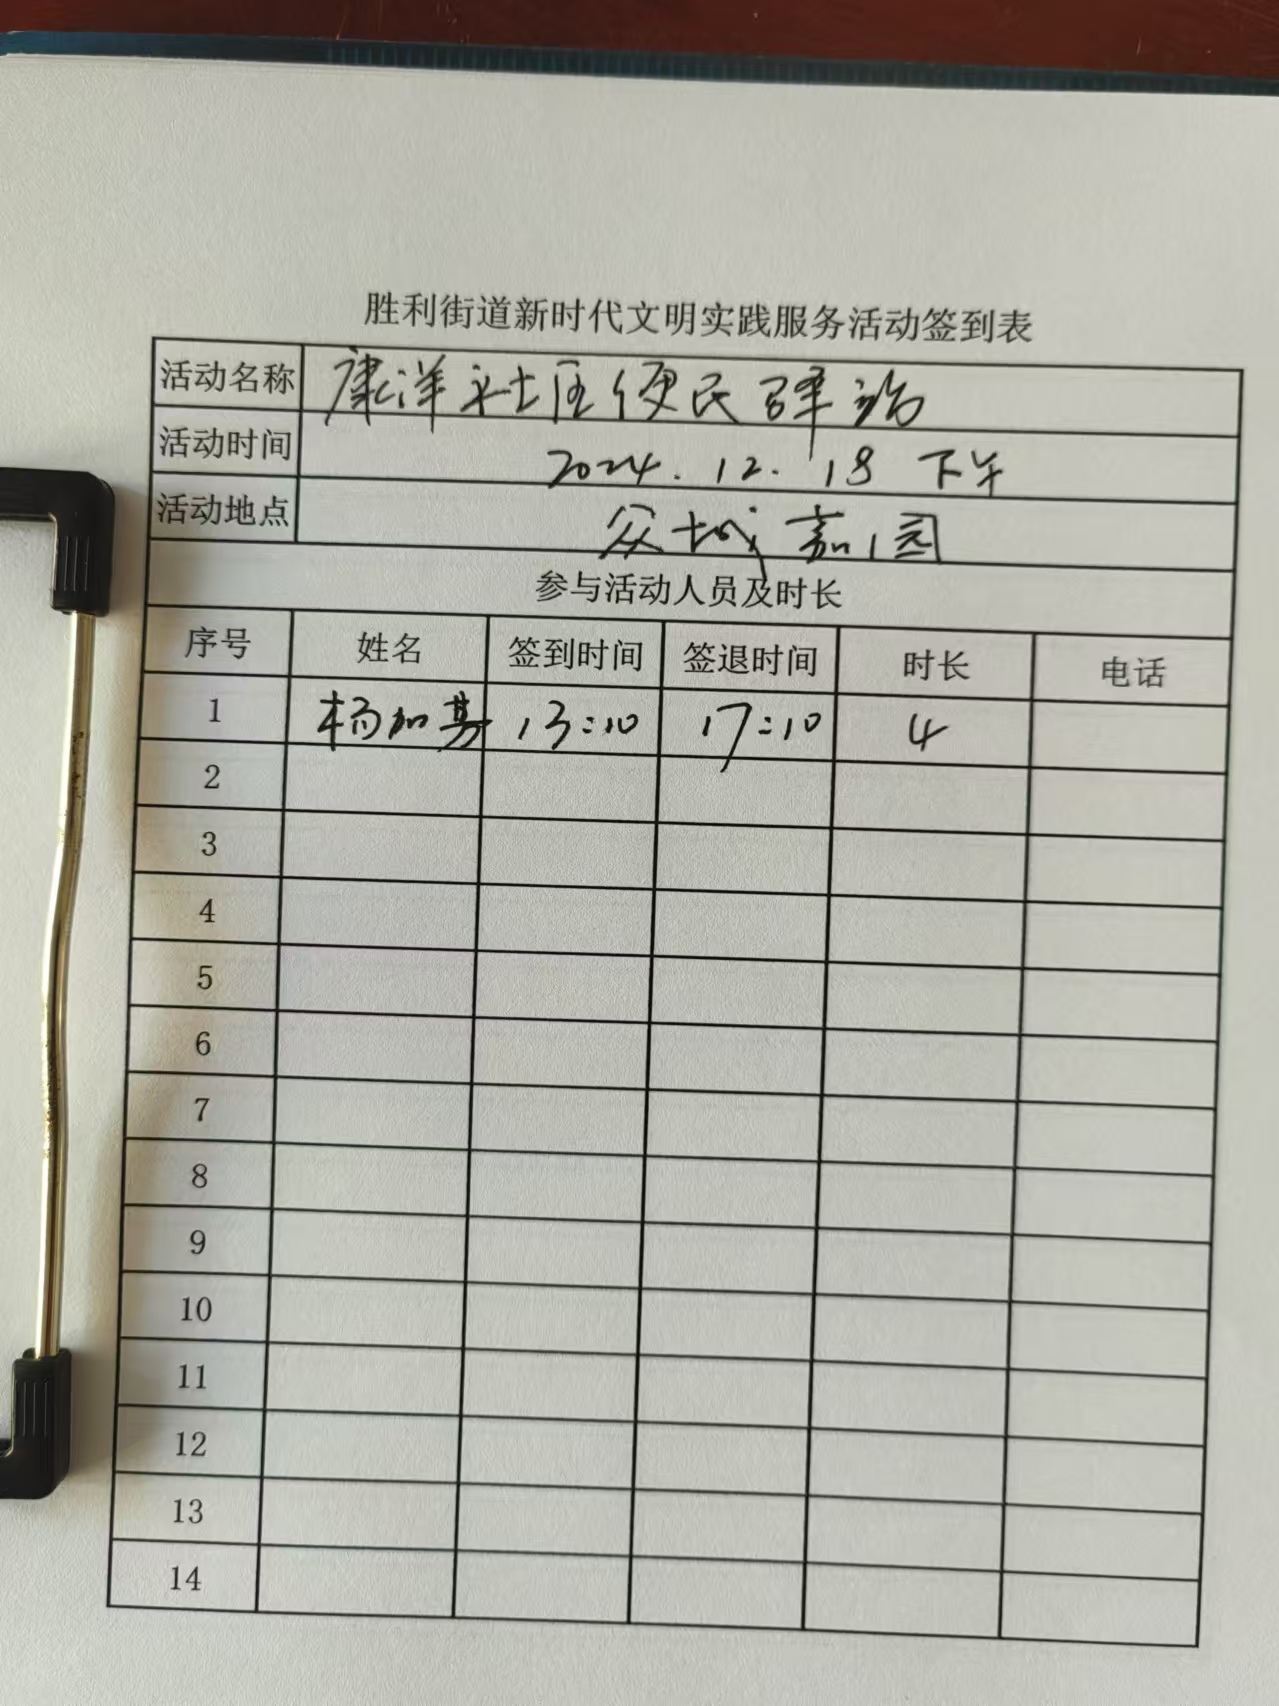 胜利街道新时代文明实践服务活动签到表
活动名称 康洋社区便民驿站
活动时间 2024.12.18 下午
活动地点 众城嘉园
参与活动人员及时长
序号 姓名 签到时间 签退时间 时长 电话
1 杨加 13:10 17:10 4
2
3
4
5
6
7
8
9
10
11
12
13
14